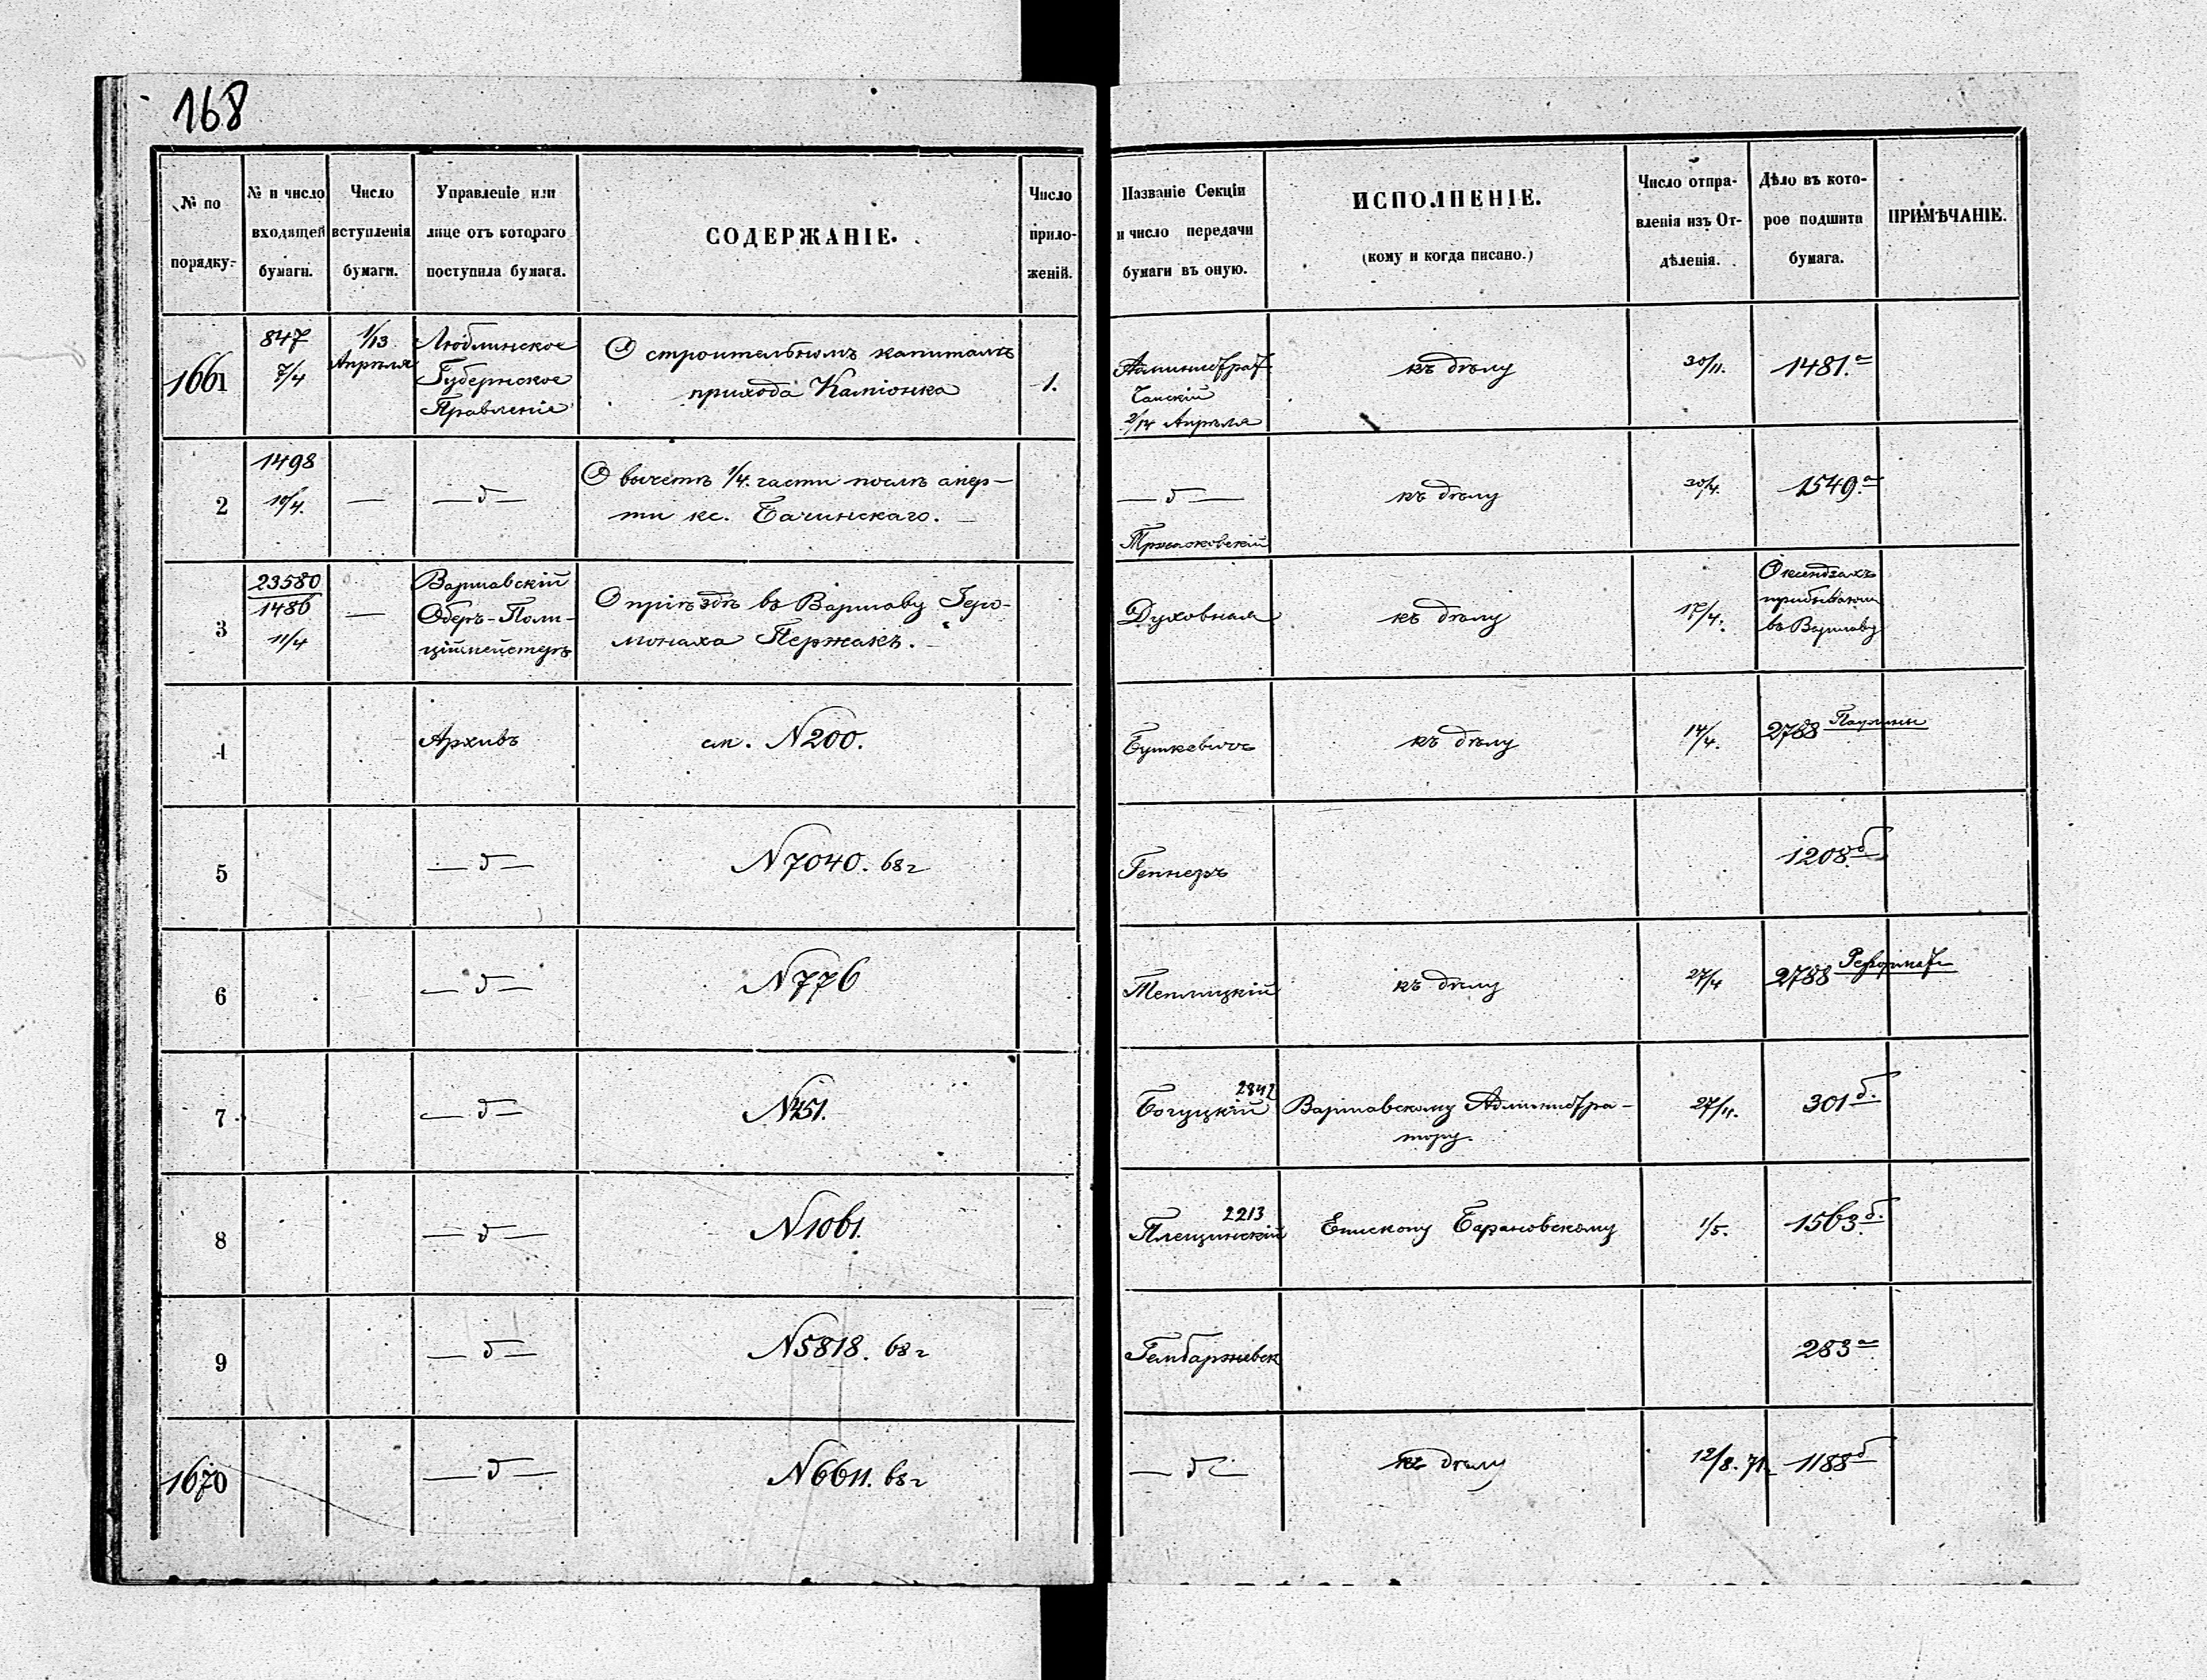 168
№ по порядку.
№ и число входящей бумаги.
Число вступленія бумаги.
Управленіе или лице отъ котораго поступила бумага.
СОДЕРЖАНІЕ.
Число приложеній.
Названіе Секціи и число передачи бумаги въ оную.
ИСПОЛНЕНІЕ.
(кому и когда писано.)
Число отправленія изъ Отдѣленія.
Дѣло въ которое подшита бумага.
ПРИМѢЧАНІЕ.
1661
847
7/4
1/13
Апрѣля
Люблинское
Губернское
Правленіе
О строительномъ капиталѣ
прихода Каміонка
1.
Администрат.
2/14 Апрѣля
къ дѣлу
1481.а
2
1498
10/4.
—
— д —
О вычетѣ 1/4 части послѣ смер-
ти кс. Бачинскаго.
— д —
къ дѣлу
30/4.
1549.а
3
23580
1486
11/4
—
Варшавскій
Оберъ-Поли-
ціймейстеръ
О пріѣздѣ въ Варшаву Іеро-
монаха Пержакъ.
Духовная
къ дѣлу
17/4.
О ксендзахъ
въ Варшаву
4
Архивъ
см. N200.
Буткевичъ
къ дѣлу
14/4.
2788 Паулины
5
— д —
N7040. 68 г
Геннеръ
1208.б
6
— д —
N776
Теплицкій
къ дѣлу
27/4
2788 Реформат
7
— д —
N451.
2842
Богуцкій
Варшавскому Администра-
тору.
27/4.
301 б.
8
— д —
N1061.
2213
Плещинскій
Епископу Барановскому
1/5.
1563 б.
9
— д —
N5818. 68 г
Гембаржевск
283 а
1670
— д —
N6611. 68 г
— д —
къ дѣлу
12/8. 71
1188 б